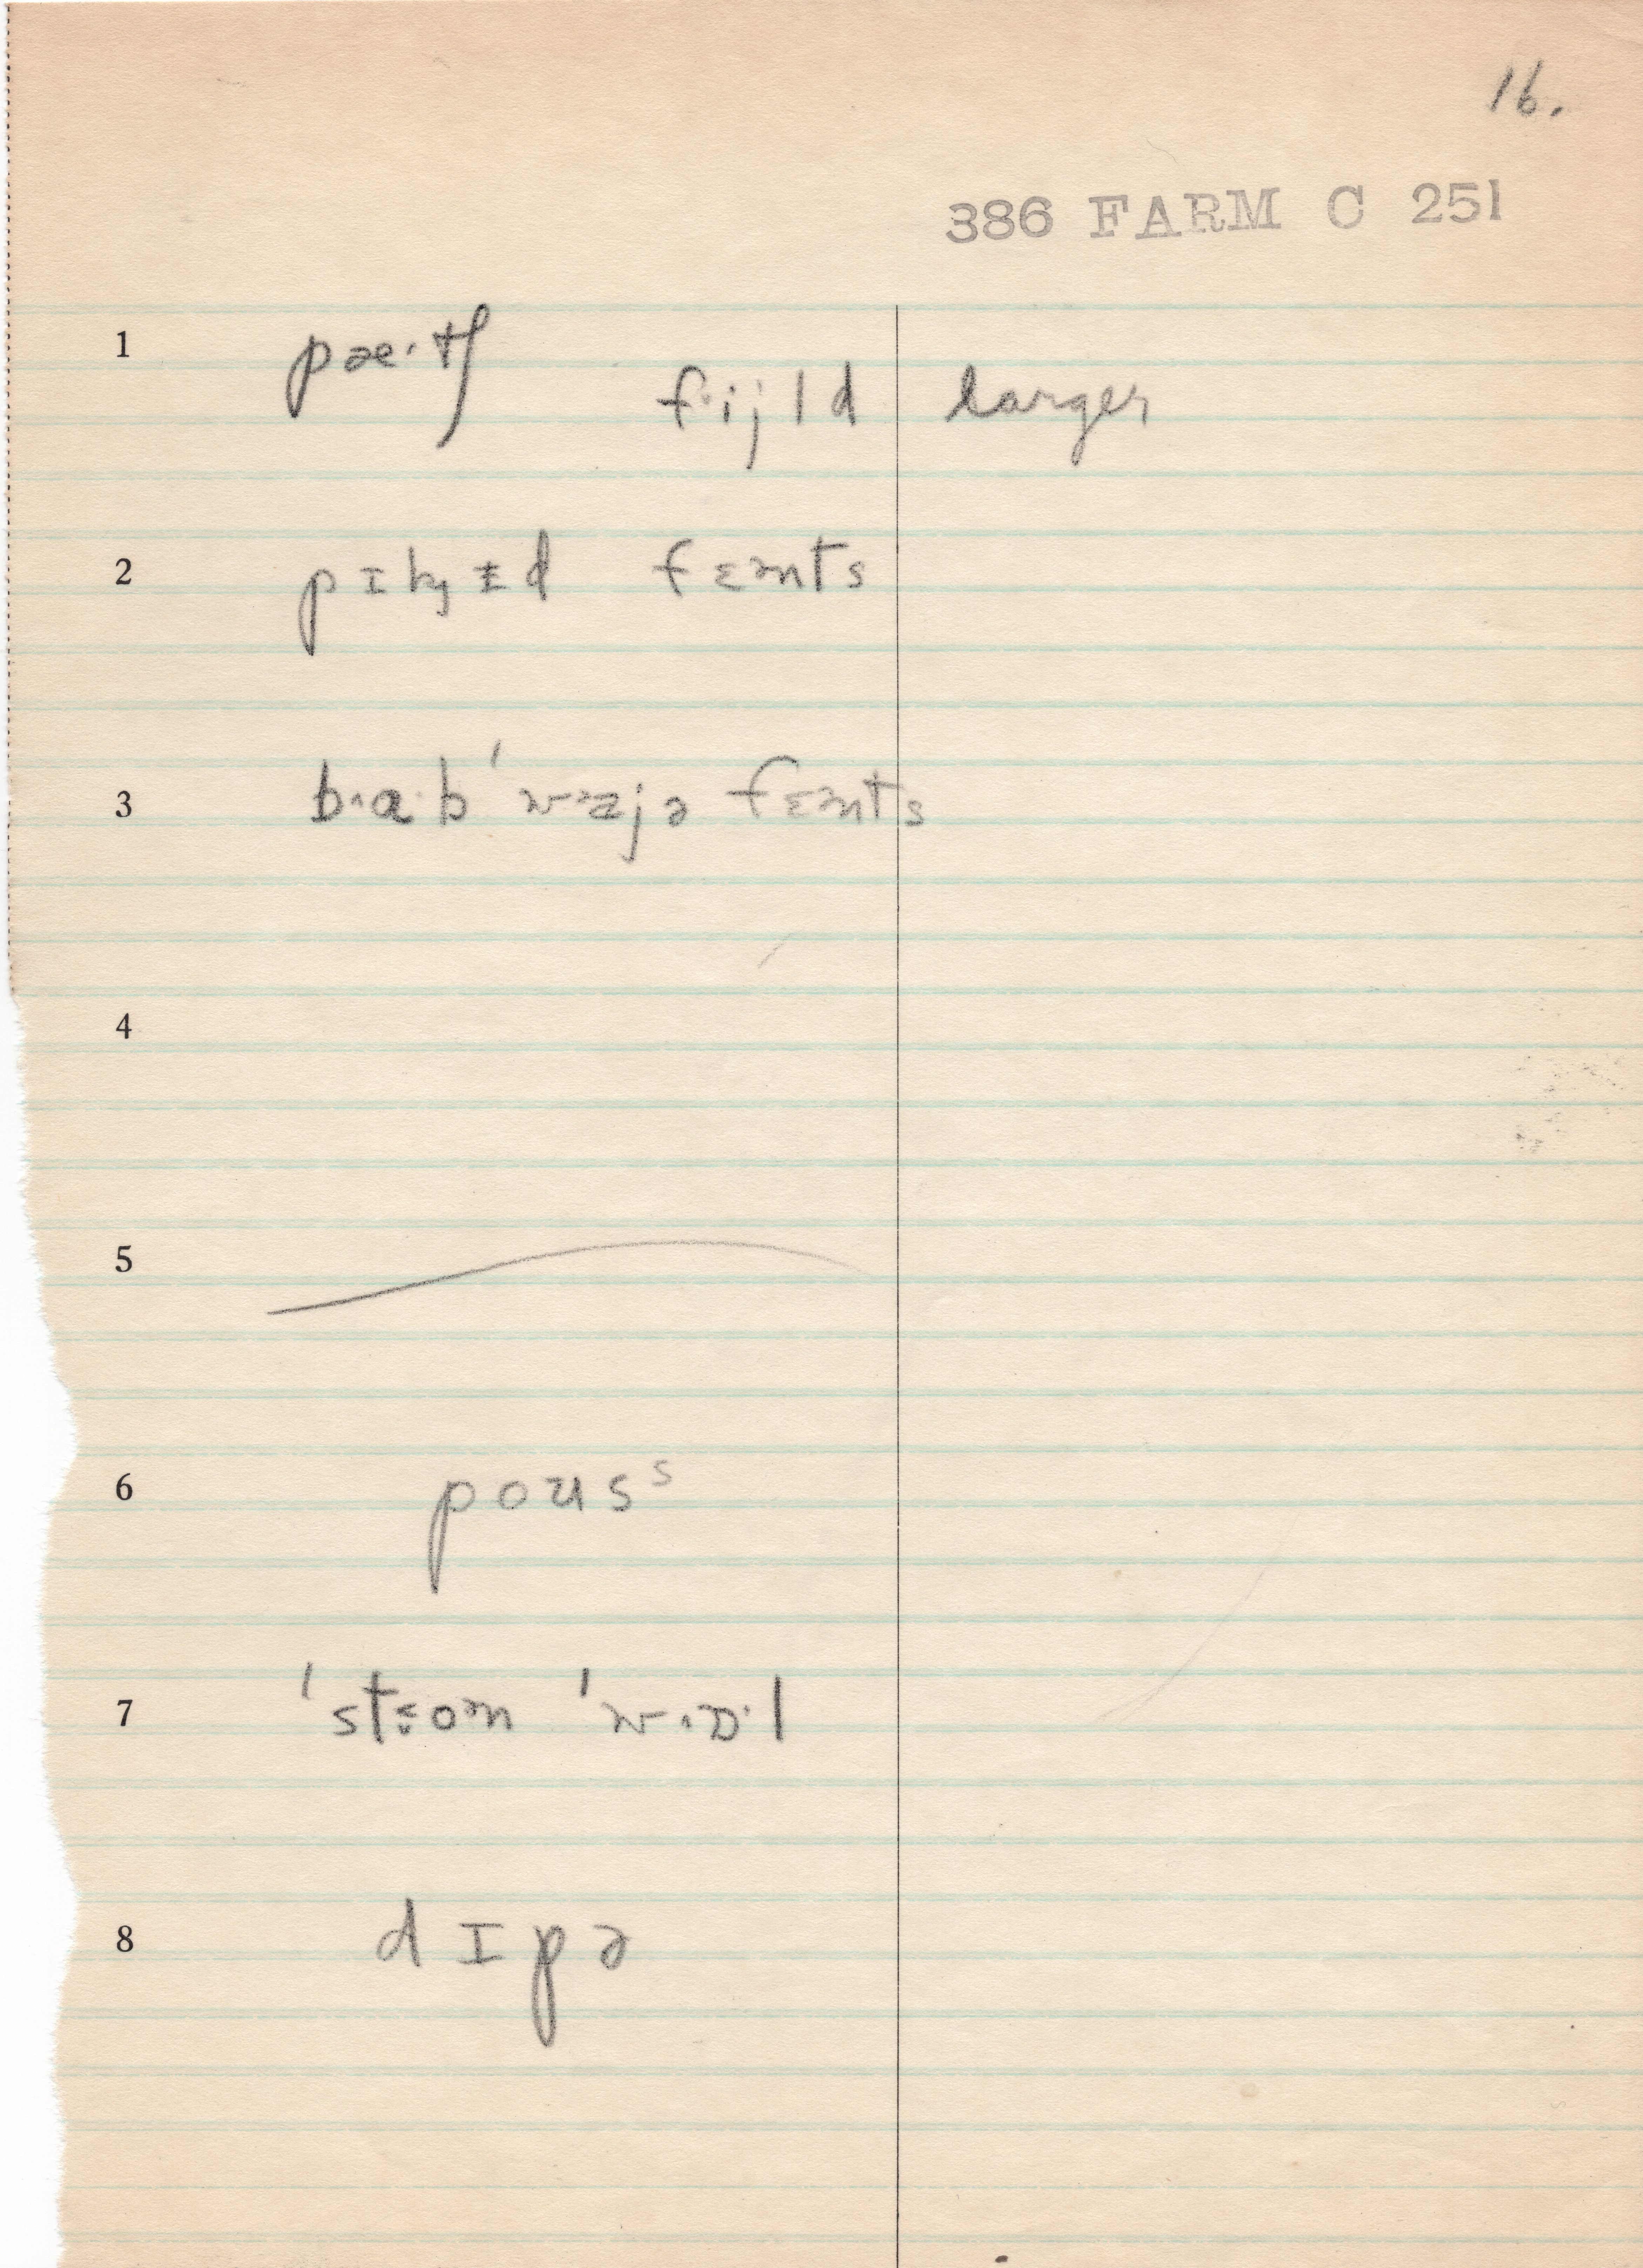 16.
386 FARM C 251
1 pæ·tʃ
f·i·j l d larger
2 pɪkɪd fɛnts
3 b·a·b ˈw fɛnts
4
5
6 poʊs ˢ
7 ˈst:on ˈw·ɒ·l
8 dɪpə